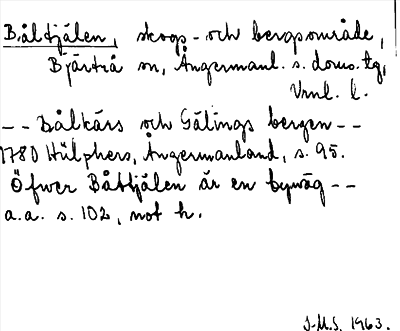 Båltjälen, skogs- och bergsområde,
Bjärtrå sn, Ångermanl. s. doms. tg,
Vrnl. l.
-- Bålkärs och Gälings bergen --
1780 Hülphers, Ångermanland, s. 95.
Öfwer Båttjälen är en byväg --
a.a. s. 102, not h.
J.M.S. 1963.